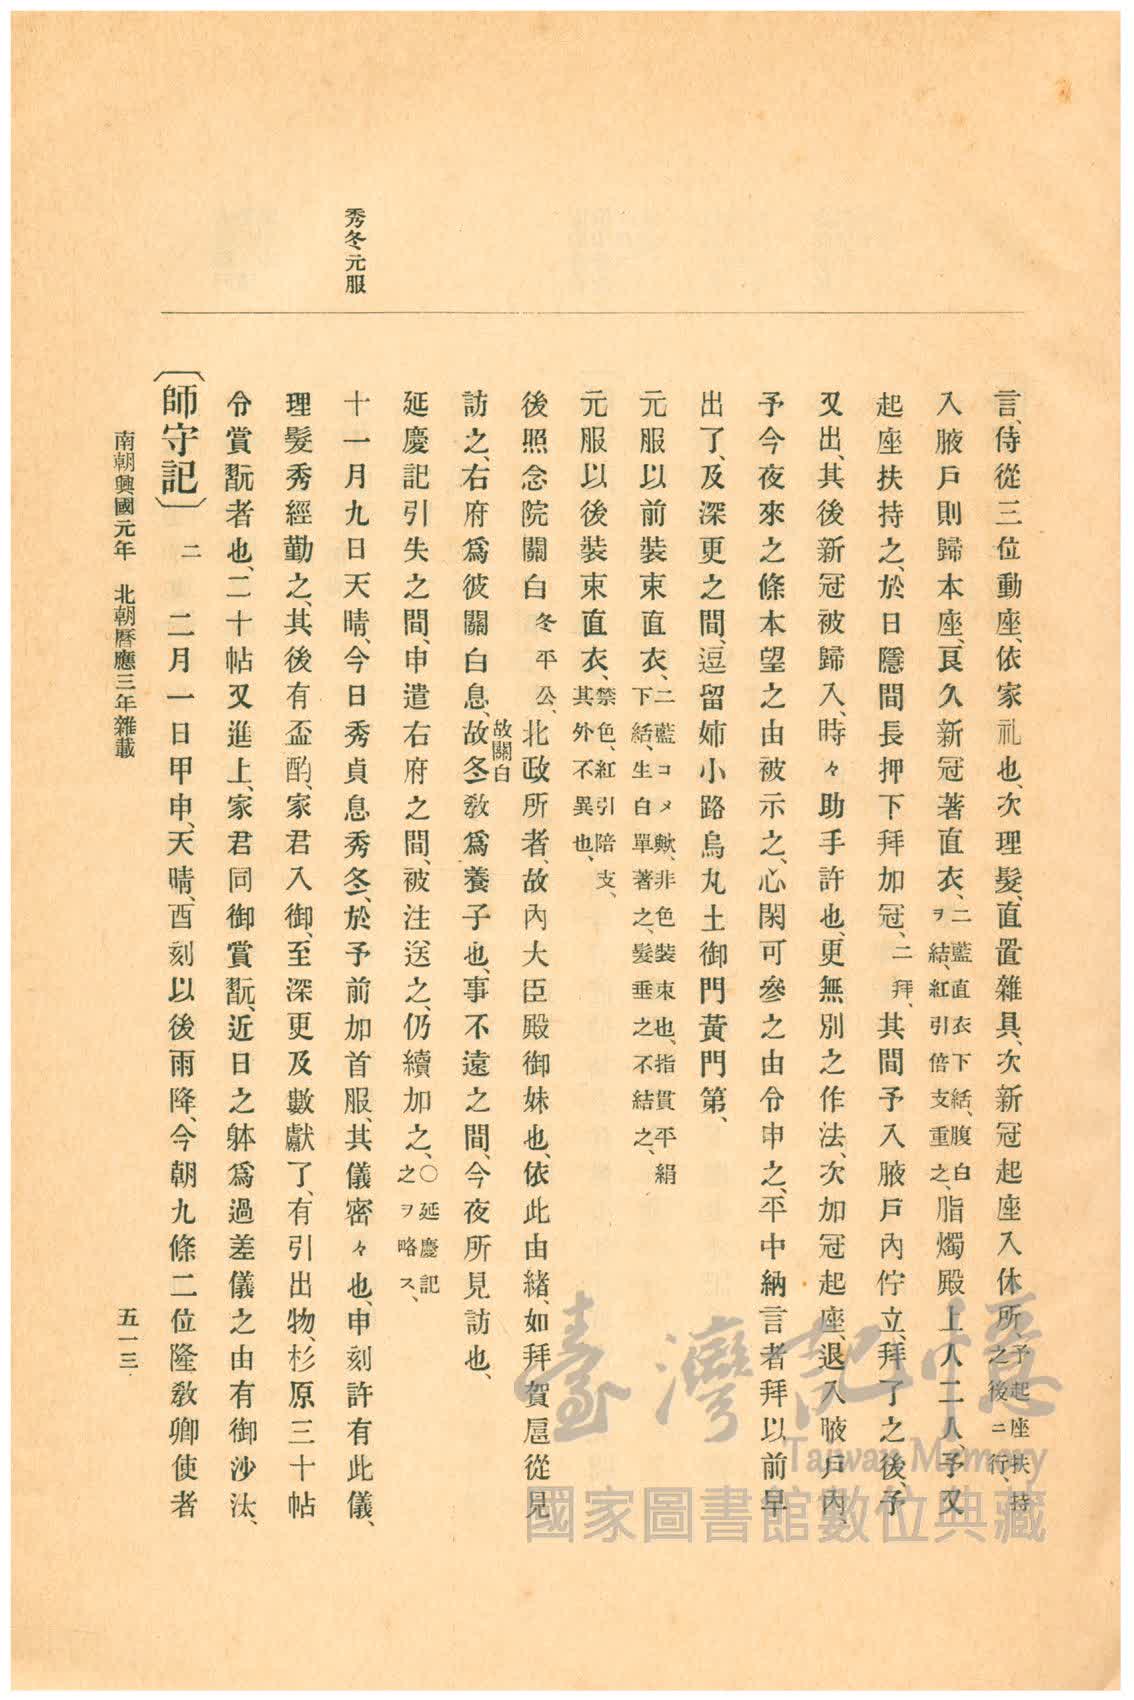 秀冬元服
言、侍從三位動座、依家礼也、次理髮、直置雜具、次新冠起座入休所、予起座扶持之後ニ行、
入腋戶則歸本座、良久新冠著直衣、二藍直衣下結、腹白ヲ結、紅引倍支重之、脂燭殿上人二人、予又
起座扶持之、於日隱間長押下拜加冠、二拜、其間予入腋戶內佇立、拜了之後、予
又出、其後新冠被歸入、時々助手許也、更無別之作法、次加冠起座、退入腋戶內、
予今夜來之條本望之由被示之、心閑可參之由令申之、平中納言者拜以前早
出了、及深更之間、逗留姉小路烏丸土御門黃門第、
元服以前裝束直衣、二藍コメ歟、非色裝束也、指貫平絹下結、生白單著之、髮垂之不結之、
元服以後裝束直衣、禁色、紅引陪支、其外不異也、
後照念院關白冬平公、北政所者、故內大臣殿御妹也、依此由緖、如拜賀扈從見
訪之、右府爲彼關白息、故關白故冬敎爲養子也、事不遠之間、今夜所見訪也、
延慶記引失之間、申遣右府之間、被注送之、仍續加之、○延慶記之ヲ略ス、
十一月九日天晴、今日秀貞息秀冬、於予前加首服、其儀密々也、申刻許有此儀、
理髮秀經勤之、其後有盃酌、家君入御、至深更及數獻了、有引出物、杉原三十帖
令賞翫者也、二十帖又進上、家君同御賞翫、近日之躰爲過差儀之由有御沙汰、
〔師守記〕二 二月一日甲申、天晴、酉刻以後雨降、今朝九條二位隆敎卿使者
南朝興國元年 北朝曆應三年雜載
五一三
臺灣記憶
Taiwan Memory
國家圖書館數位典藏